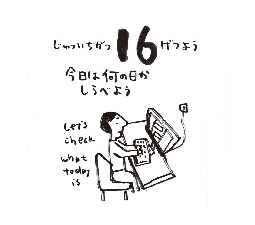 じゅういちがつ 16 げつよう
今日は何の日か
しらべよう
Let's
check
what
today
is